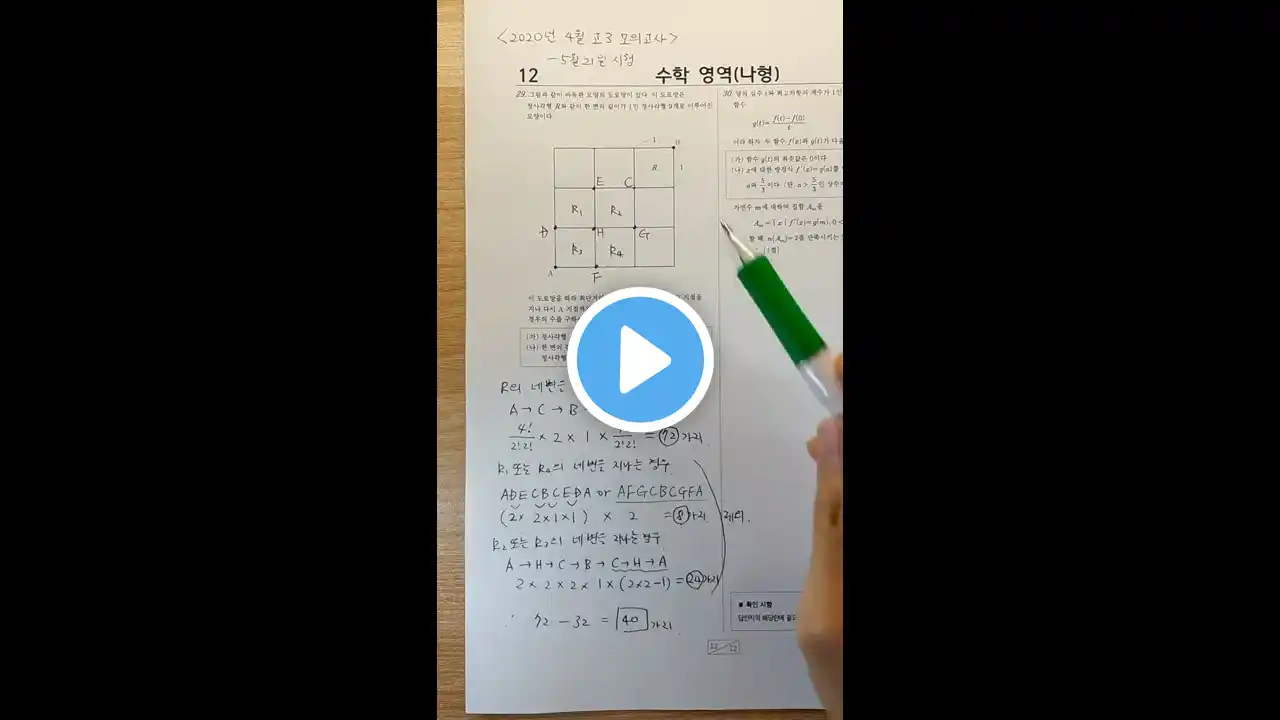 <2020년 4월 고3 모의고사>
-5월21일 시험
12
수학 영역(나형)
29. 그림과 같이 바둑판 모양의 도로망이 있다. 이 도로망은
정사각형 R와 같이 한 변의 길이가 1인 정사각형 9개로 이루어진
모양이다.
1
B
R
1
E
C
R₁
R₂
D
H
G
R₃
R₄
A
F
이 도로망을 따라 최단거리 지점을
지나 다시 A 지점까
경우의 수를 구하시
(가) 정사각형
(나) 한 변의 길
정사각형
R의 네변을
A→C→B
4!/2!2! × 2 × 1 × 2!2! = 72 가지
R₁ 또는 R₄의 네변을 지나는 경우
ADECBCEDA or AFGCBCGFA
(2× 2×1×1) × 2 = 8가지
제외.
R₂ 또는 R₃의 네변을 지나는 경우
A→H→C→B→C→H→A
2 × 2 × 2 × 1 × (2×2-1) = 24가지
∴ 72 - 32 = 40 가지
30. 양의 실수 t와 최고차항의 계수가 1인
함수
g(t)= f(t)-f(0)/t
이라 하자. 두 함수 f(x)와 g(t)가 다음
(가) 함수 g(t)의 최솟값은 0이다.
(나) x에 대한 방정식 f′(x)=g(a)를
a와 5/3이다. (단, a>5/3인 상수
자연수 m에 대하여 집합 Aₘ을
Aₘ={x | f′(x)=g(m), 0<
할 때, n(Aₘ)=2를 만족시키는
[4점]
■ 확인 사항
답안지의 해당란에 필요
12
12